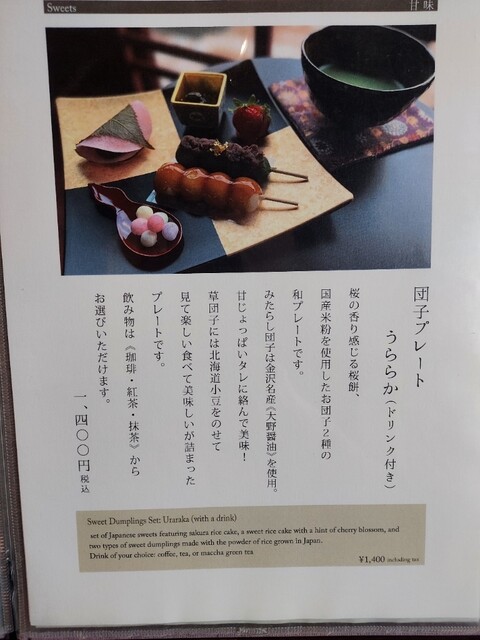 Sweets
甘味
団子プレート
うららか（ドリンク付き）
桜の香り感じる桜餅、
国産米粉を使用したお団子2種の
和プレートです。
みたらし団子は金沢名産《大野醤油》を使用。
甘じょっぱいタレに絡んで美味！
草団子には北海道小豆をのせて
見て楽しい食べて美味しいが詰まった
プレートです。
飲み物は《珈琲・紅茶・抹茶》から
お選びいただけます。
一、四〇〇円 税込
Sweet Dumplings Set: Uraraka (with a drink)
set of Japanese sweets featuring sakura rice cake, a sweet rice cake with a hint of cherry blossom, and
two types of sweet dumplings made with the powder of rice grown in Japan.
Drink of your choice: coffee, tea, or maccha green tea
¥1,400 including tax